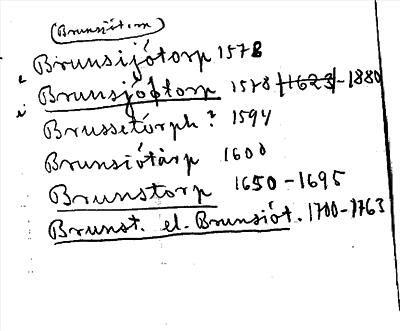 (Brunsiótorp)
Brunsijótorp 1578
Brunsjöptorp 1578 1623-1880
Brussetórph? 1594
Brunsiótàrp 1600
Brunstorp 1650-1695
Brunst. el. Brunsiót. 1700-1763